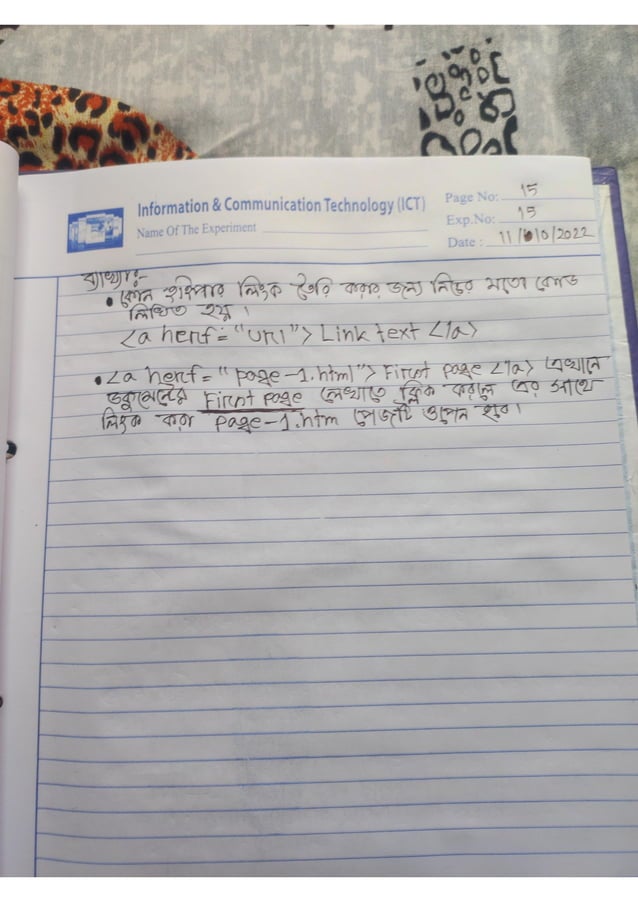 Information & Communication Technology (ICT)
Name Of The Experiment
Page No: 15
Exp.No: 15
Date : 11/10/2022
ব্যাখ্যাঃ-
• কোন হাইপার লিংক তৈরি করার জন্য নিচের মতো কোড
লিখিত হয়।
<a herf = "url"> Link text </a>
• <a herf = "page-1.html"> First page </a> এখানে
ডকুমেন্টের First page লেখাতে ক্লিক করলে এর সাথে
লিংক করা page-1.htm পেজটি ওপেন হবে।